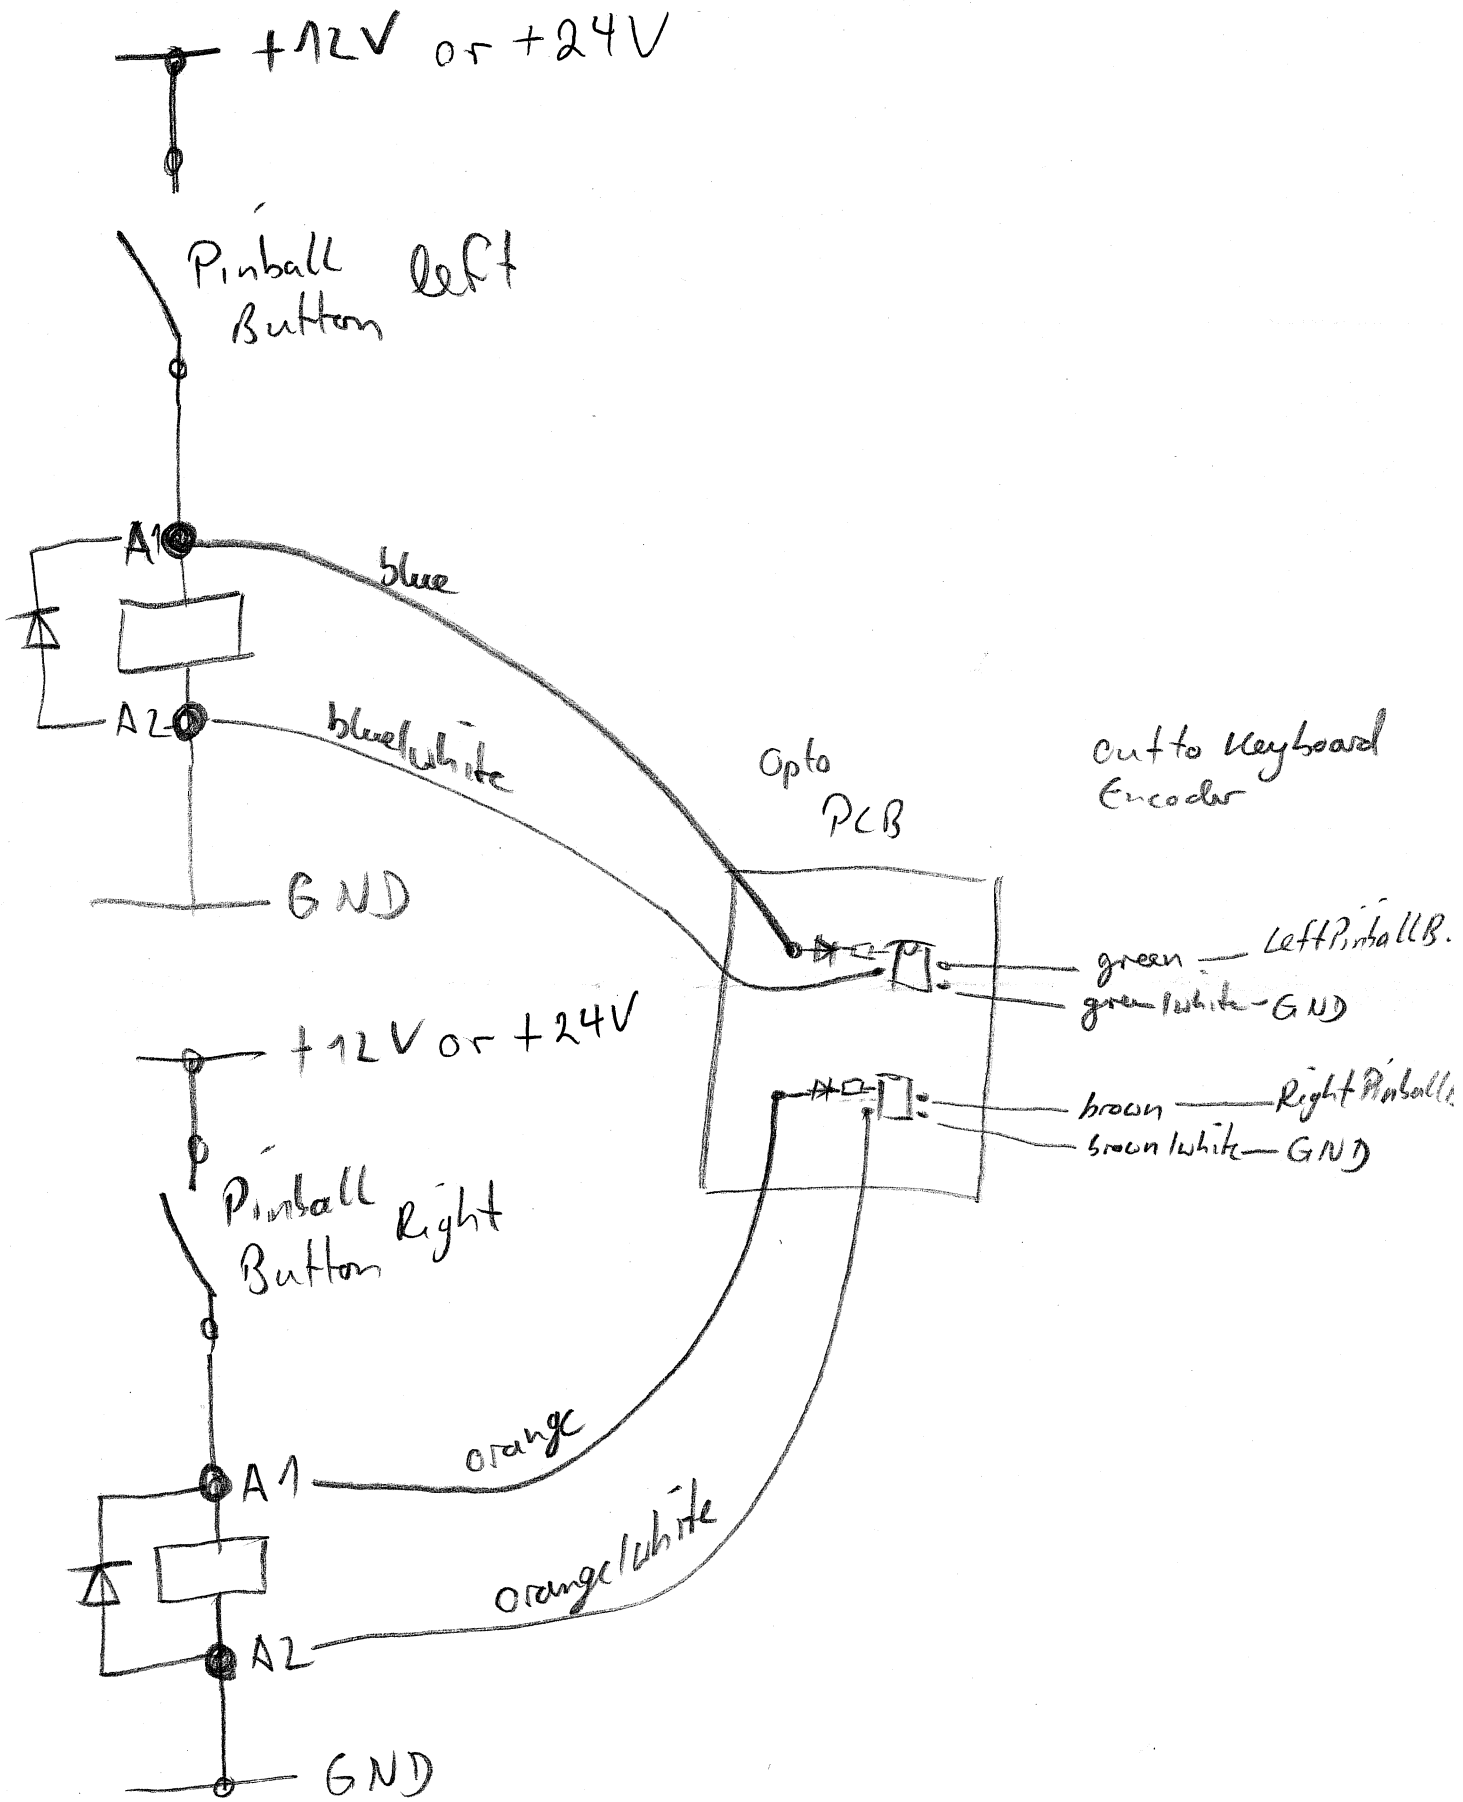 +12V or +24V
Pinball left
Button
A1
blue
A2
blue/white
GND
Opto
PCB
Out to Keyboard
Encoder
green — Left Pinball B.
green/white - GND
brown — Right Pinball
brown/white - GND
+12V or +24V
Pinball Right
Button
A1
orange
orange/white
A2
GND